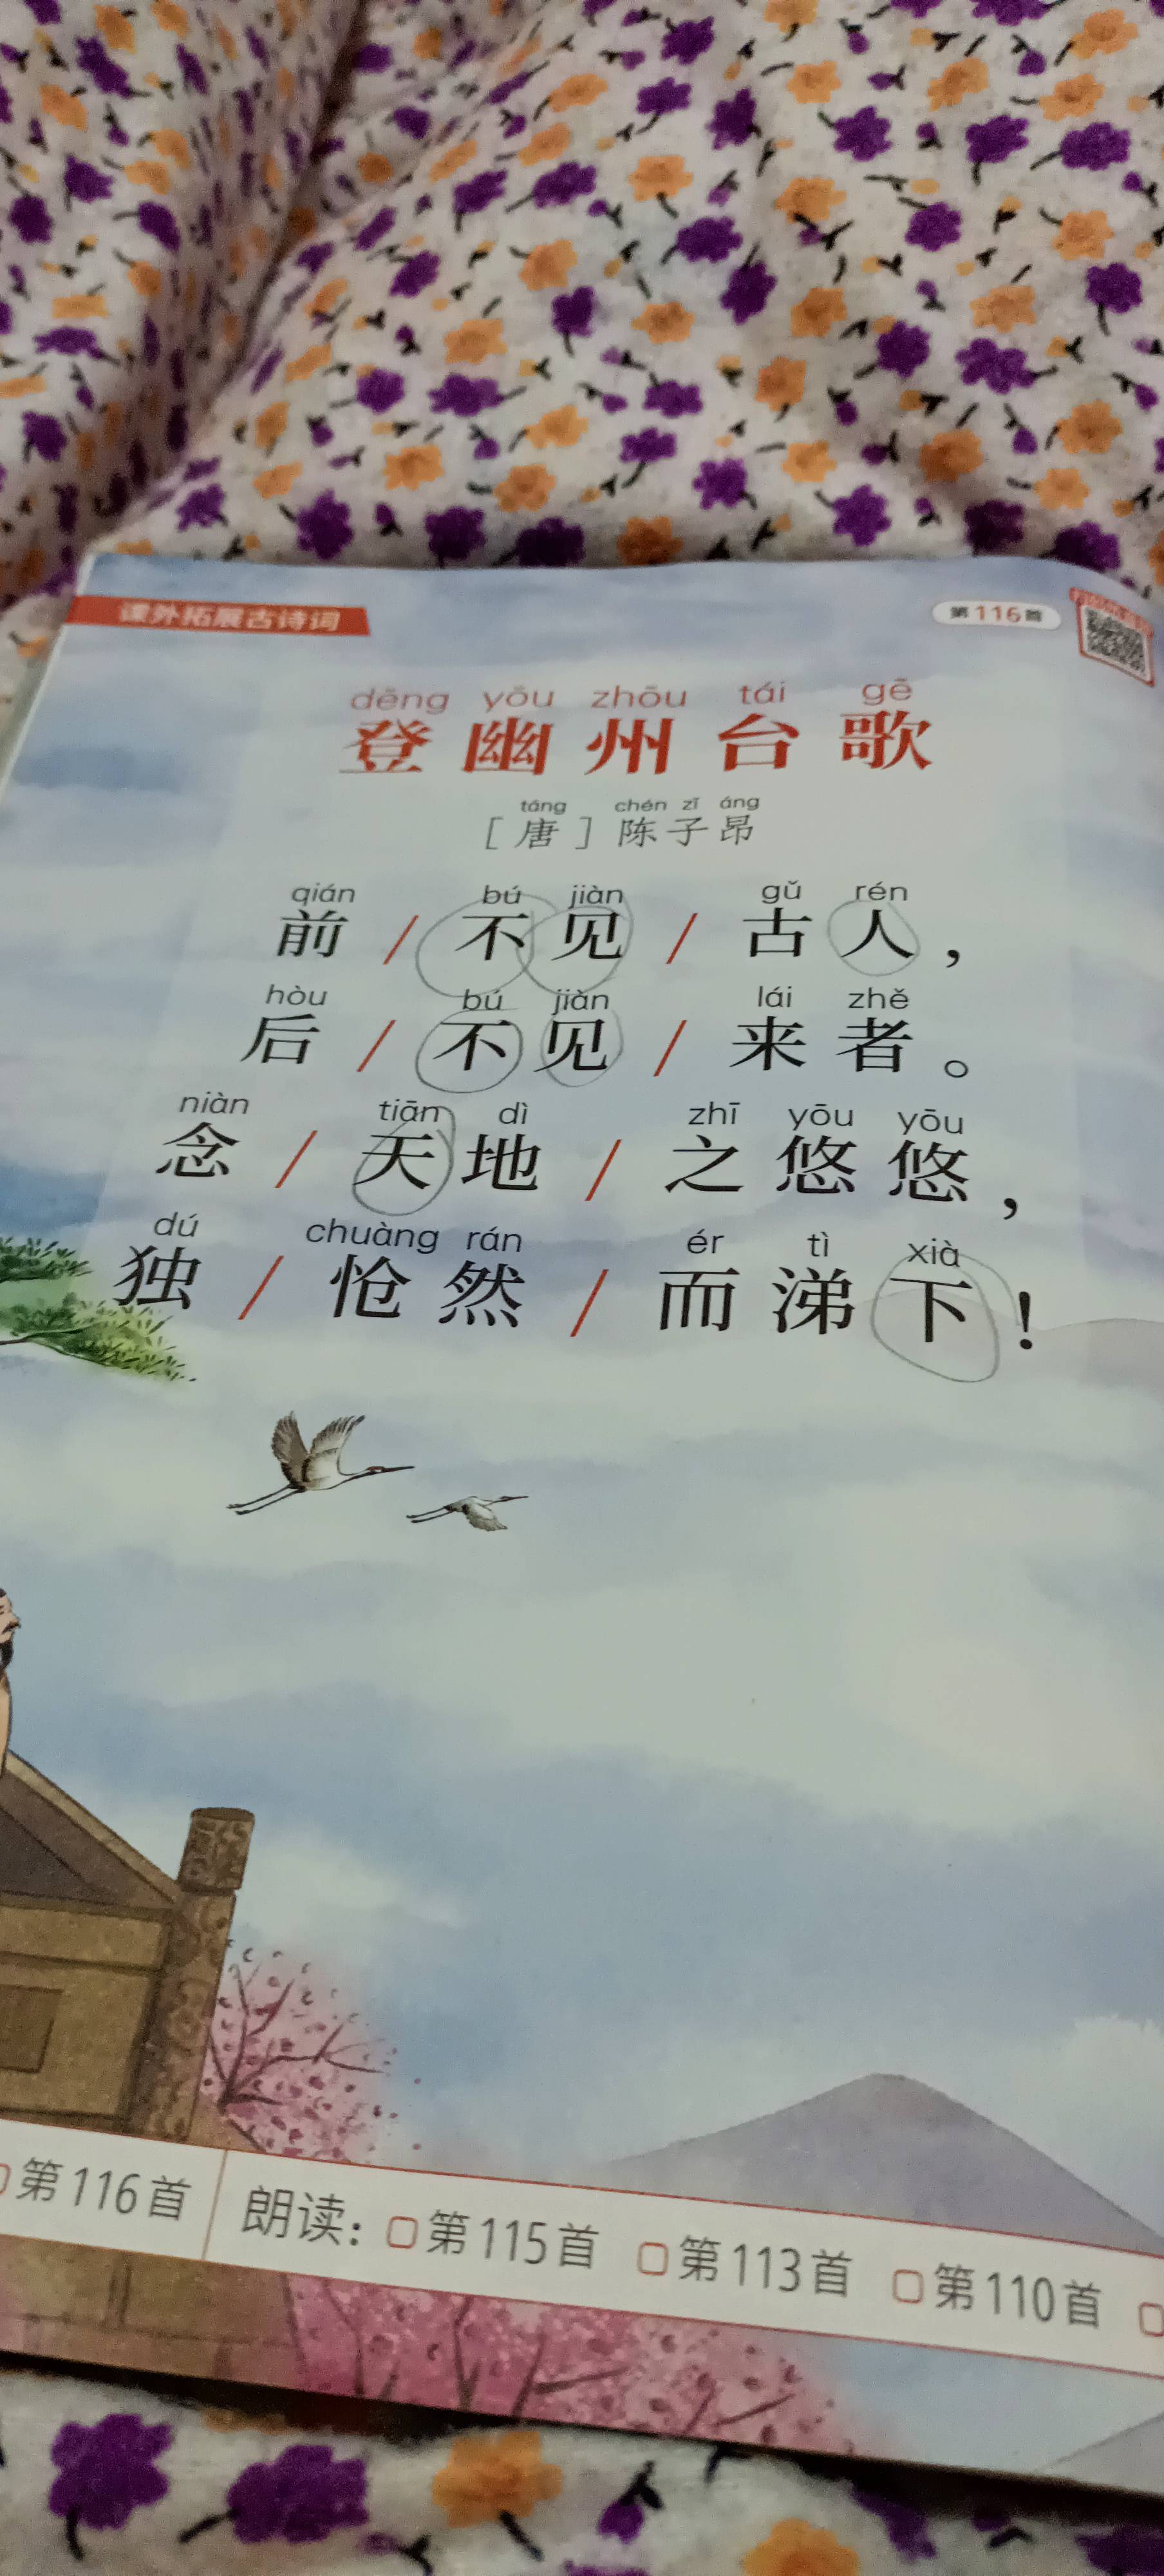 课外拓展古诗词
第116首
dēng yōu zhōu tái gē
登幽州台歌
táng chén zǐ áng
[唐]陈子昂
qián bú jiàn gǔ rén
前/不见/古人，
hòu bú jiàn lái zhě
后/不见/来者。
niàn tiān dì zhī yōu yōu
念/天地/之悠悠，
dú chuàng rán ér tì xià
独/怆然/而涕下！
第116首 朗读： □第115首 □第113首 □第110首 □